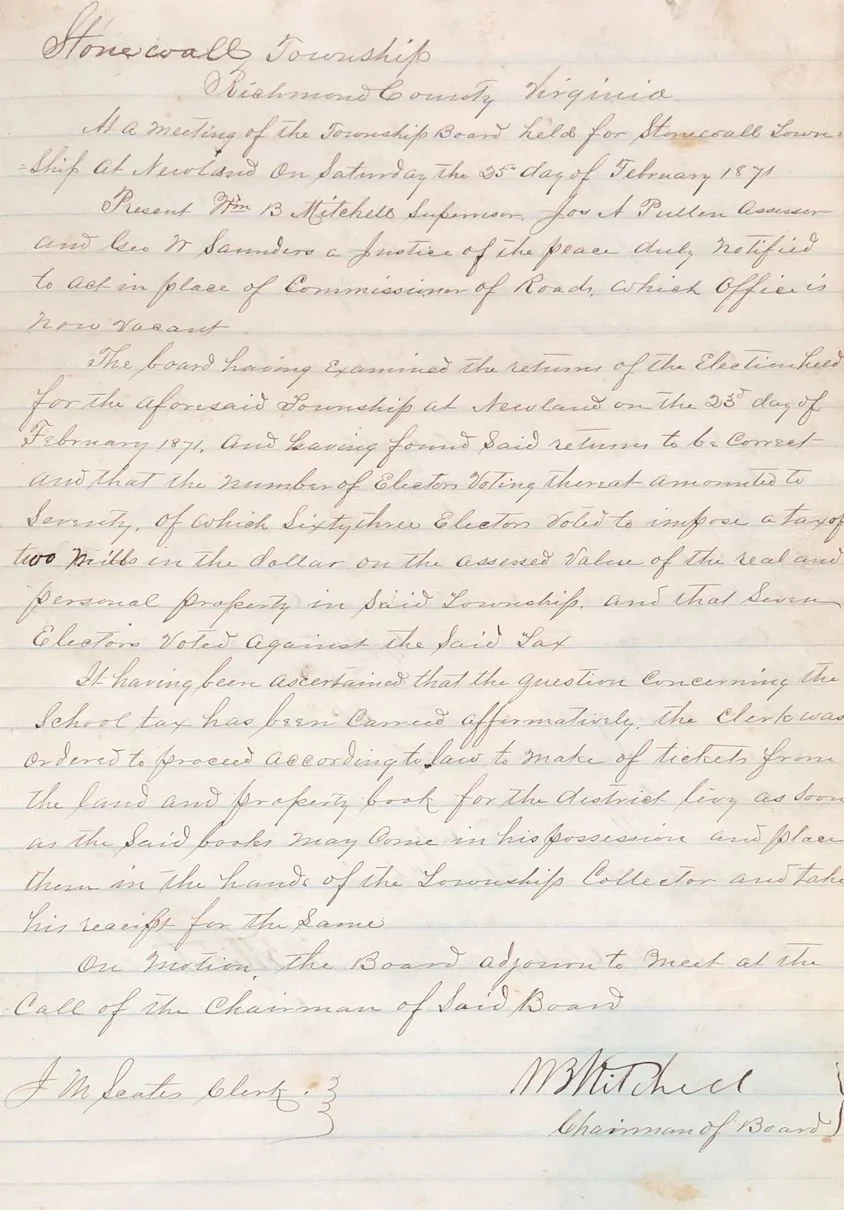 Stonewall Township
Richmond County Virginia
At a meeting of the Township Board held for Stonewall Town=
=ship at Newland on Saturday the 25th day of February 1871
Present Wm B Mitchell Supervisor, Jos A Pullen Assessor
and Geo W Saunders a Justice of the peace duly notified
to act in place of Commissioner of Roads, which Office is
now vacant
The board having examined the returns of the Election held
for the aforesaid Township at Newland on the 23d day of
February 1871, and having found said returns to be correct
and that the number of Electors Voting thereat amounted to
Seventy, of which Sixty three Electors Voted to impose a tax of
two Mills in the dollar on the assessed Value of the real and
personal property in Said Township, and that Seven
Electors Voted against the Said Tax
It having been ascertained that the question concerning the
School tax has been Carried affirmatively, the clerk was
ordered to proceed according to law to make of tickets from
the land and property book for the district livy as soon
as the Said books may Come in his possession and place
them in the hands of the Township Collector and take
his receipt for the Same
On Motion, the Board adjourn to Meet at the
Call of the Chairman of Said Board
J M Scates Clerk.
W B Mitchell
Chairman of Board